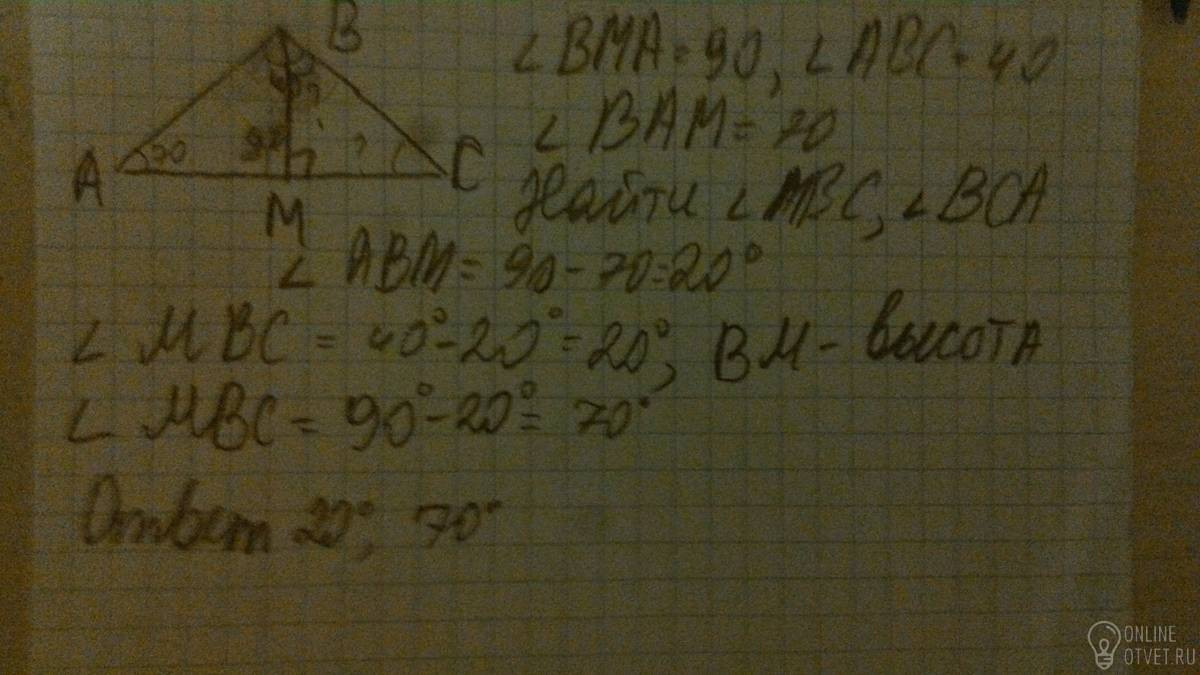 B
∠BMA=90, ∠ABC=40
∠BAM=70
A
70
C
M
Найти ∠MBC, ∠BCA
∠ABM=90-70=20°
∠MBC=40°-20°=20°, BM-высота
∠MBC=90°-20°=70°
Ответ 20°, 70°
ONLINE
OTVET.RU